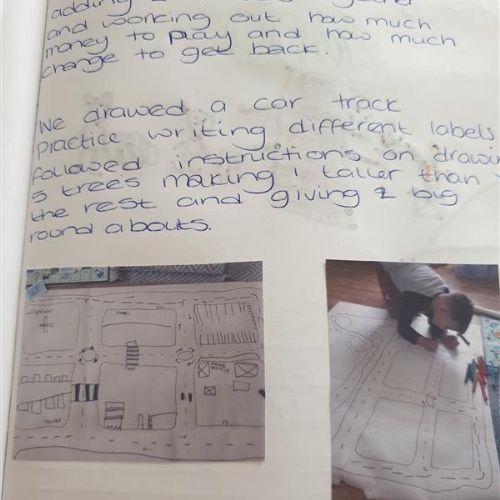 and working out how much
money to play and how much
change to get back.
We drawed a car track
Practice writing different labels
followed instructions on drawin
5 trees making 1 taller than
the rest and giving 2 big
round abouts.